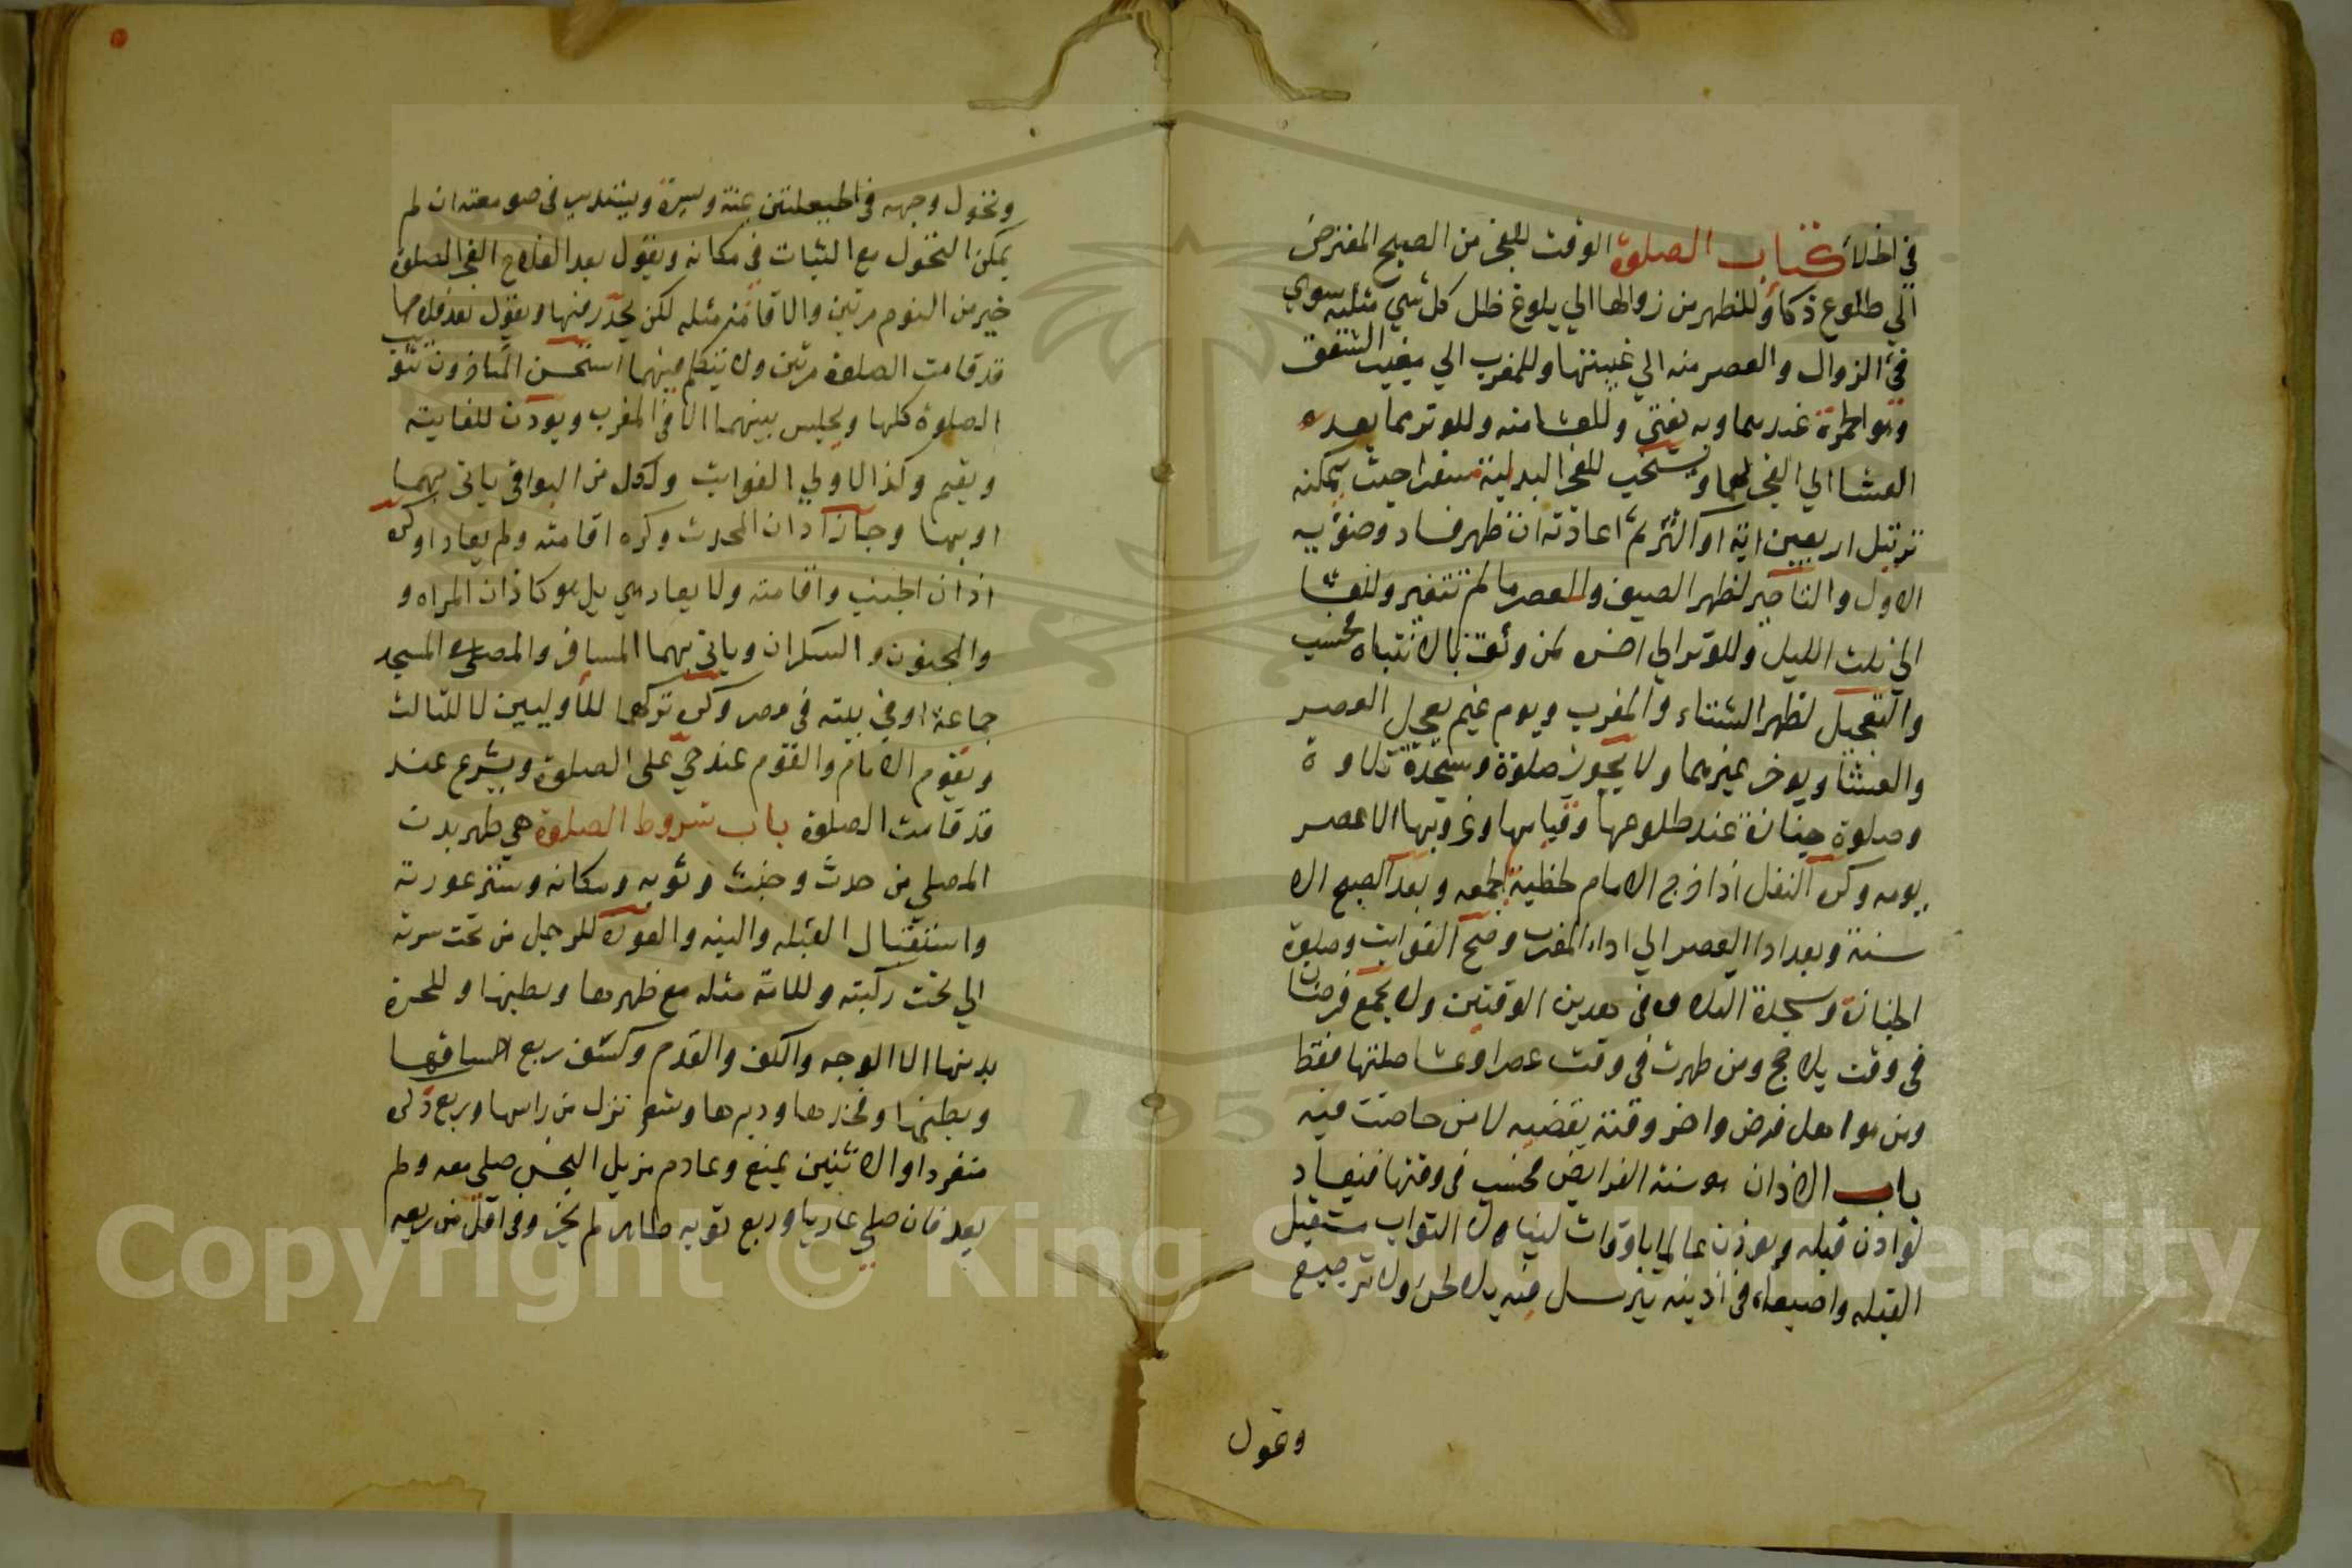 في الخلا كتاب الصلوة الوقت للفجر من الصبح المعترض
الي طلوع ذكا وللظهر من زوالها الي بلوغ ظل كل شي مثليه سوي
في الزوال والعصر منه الي غيبتها وللمغرب الي مغيب الشفق
وهو الحمرة عندهما وبه يفتي وللعشا منه وللوتر مما بعده
العشا الي الفجر لهما ويستحب للفجر البداية مسفرا حيث يمكنه
ترتيل اربعين اية او اكثر ثم اعادته ان ظهر فساد وضوئه
الاول والتاخير لظهر الصيف وللعصر ما لم تتغير وللعشا
الي ثلث الليل وللوتر الي اخره لمن وثق بالانتباه فحسب
والتعجيل لظهر الشتاء والمغرب ويوم غيم يعجل العصر
والعشا ويوخر غيرهما ولا يجوز صلوة وسجدة تلاوة
وصلوة جنازة عند طلوعها وقيامها وغروبها الا عصر
يومه وكره النفل اذا خرج الامام لخطبة الجمعه وبعد الصبح الا
سنته وبعد ادا العصر الي اداء المغرب وصح الفوايت وصلوة
الجنازة وسجدة التلاوه في هدين الوقتين ولا يجمع فرضان
في وقت بلا حج ومن طهرت في وقت عصر او عشا صلتها فقط
ومن هو اهل فرض واخر وقته يقضيه لا من حاضت فيه
باب الاذان هو سنة الفرايض فحسب في وقتها فيعاد
لو اذن قبله ويوذن عالما باوقات لينال الثواب مستقبل
القبله واصبعاه في اذنيه يترسل فيه بلا لحن ولا ترجيع
وتحول
وتحول وجهه في الحيعلتين يمنة ويسرة ويستدير في صومعته ان لم
يمكن التحول مع الثبات في مكانه ويقول بعد الفلاح الفجر الصلوة
خير من النوم مرتين والاقامة مثله لكن يحدر فيها ويقول بعد فلاحها
قد قامت الصلوة مرتين ولا يتكلم فيهما استحسن المتاخرون تثويب
الصلوة كلها ويجلس بينهما الا في المغرب ويودن للفايته
ويقيم وكذا لاولي الفوايت ولكل من البواقي ياتي بهما
او بها وجاز اذان المحدث وكره اقامته ولم يعاد وكره
اذان الجنب واقامته ولا يعاد هي بل هو كاذان المراه و
والمجنون والسكران وياتي بهما المسافر والمصلي المسجد
جماعة او في بيته في مصر وكره تركهما للاوليين لا للثالث
ويقوم الامام والقوم عند حي علي الصلوة ويشرع عند
قد قامت الصلوة باب شروط الصلوة هي طهر بدن
المصلي من حدث وخبث وثوبه ومكانه وستر عورته
واستقبال القبله والنيه والعورة للرجل من تحت سرته
الي تحت ركبته وللامة مثله مع ظهرها وبطنها وللحرة
بدنها الا الوجه والكف والقدم وكشف ربع ساقها
وبطنها وفخدها ودبرها وشعر نزل من راسها وربع ذكر
منفردا والانثيين يمنع وعادم مزيل النجس صلي معه ولم
يعد فان صلي عاريا وربع ثوبه طاهر لم يجز وفي اقل من ربعه
Copyright © King Saud University
1957